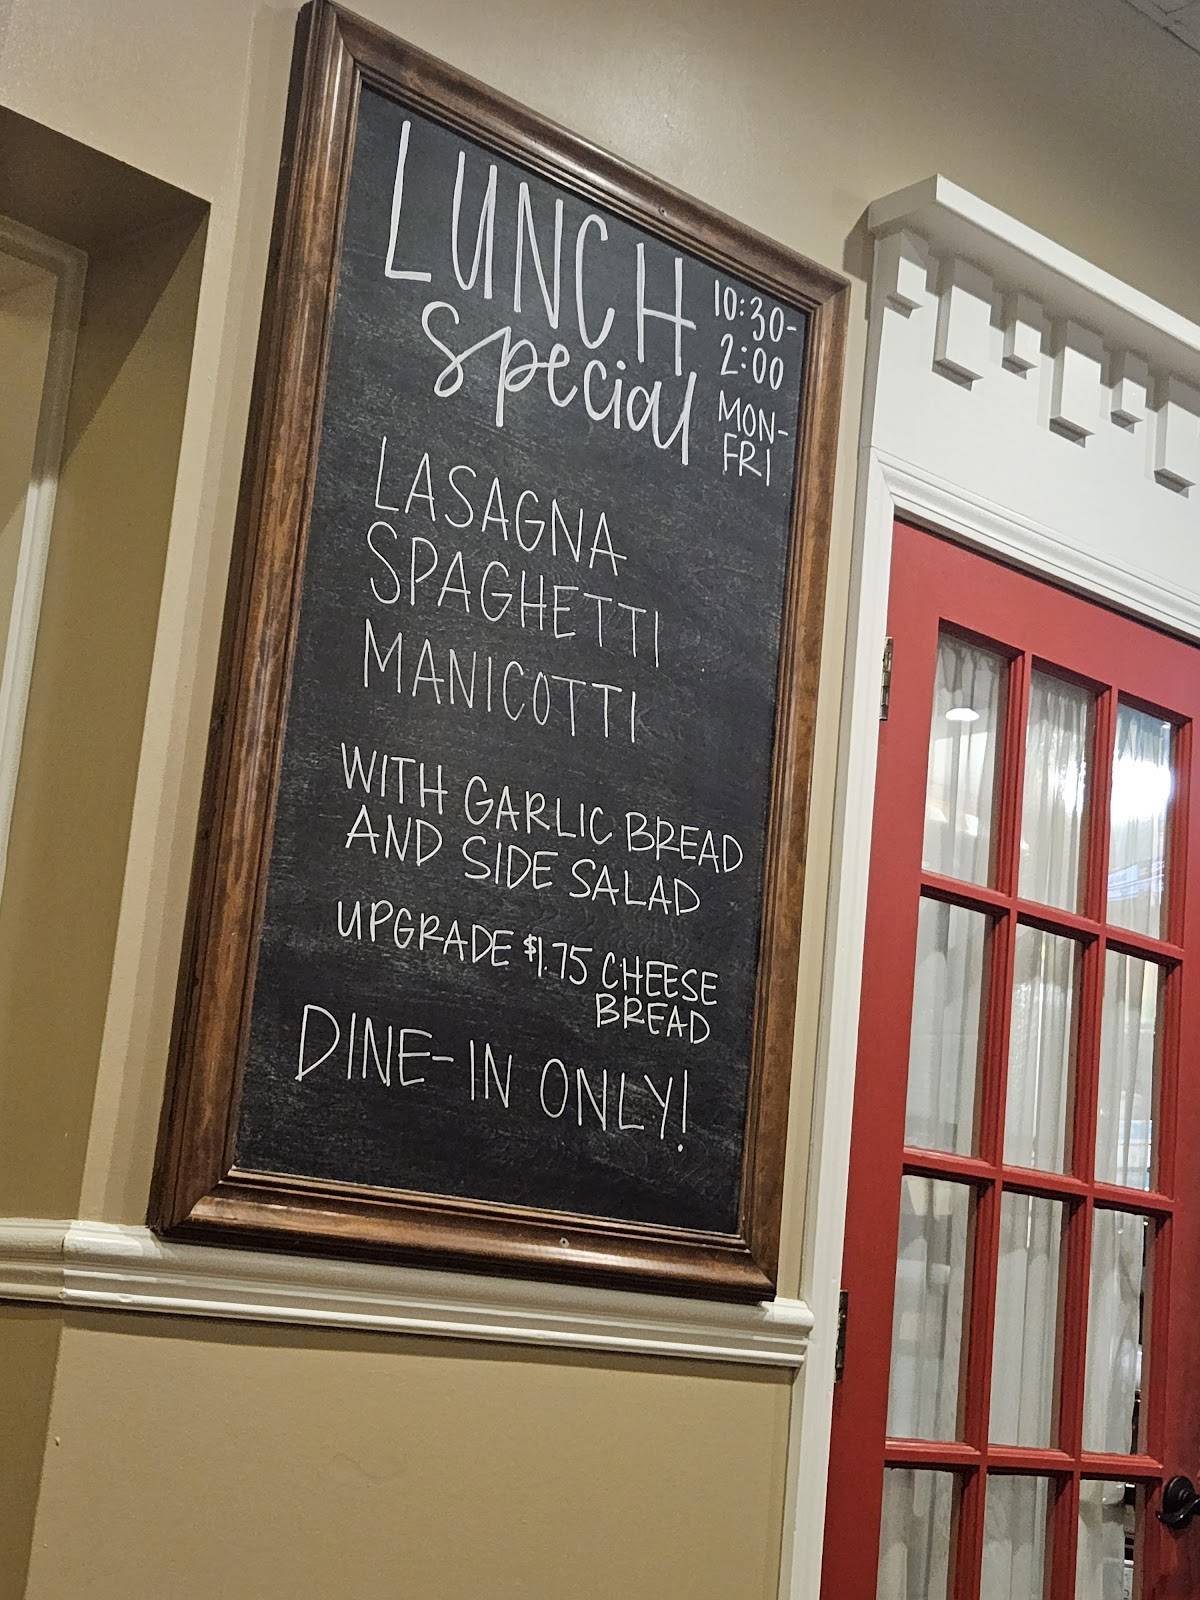 LUNCH
special
10:30-
2:00
MON-
FRI
LASAGNA
SPAGHETTI
MANICOTTI
WITH GARLIC BREAD
AND SIDE SALAD
UPGRADE $1.75 CHEESE
BREAD
DINE-IN ONLY!